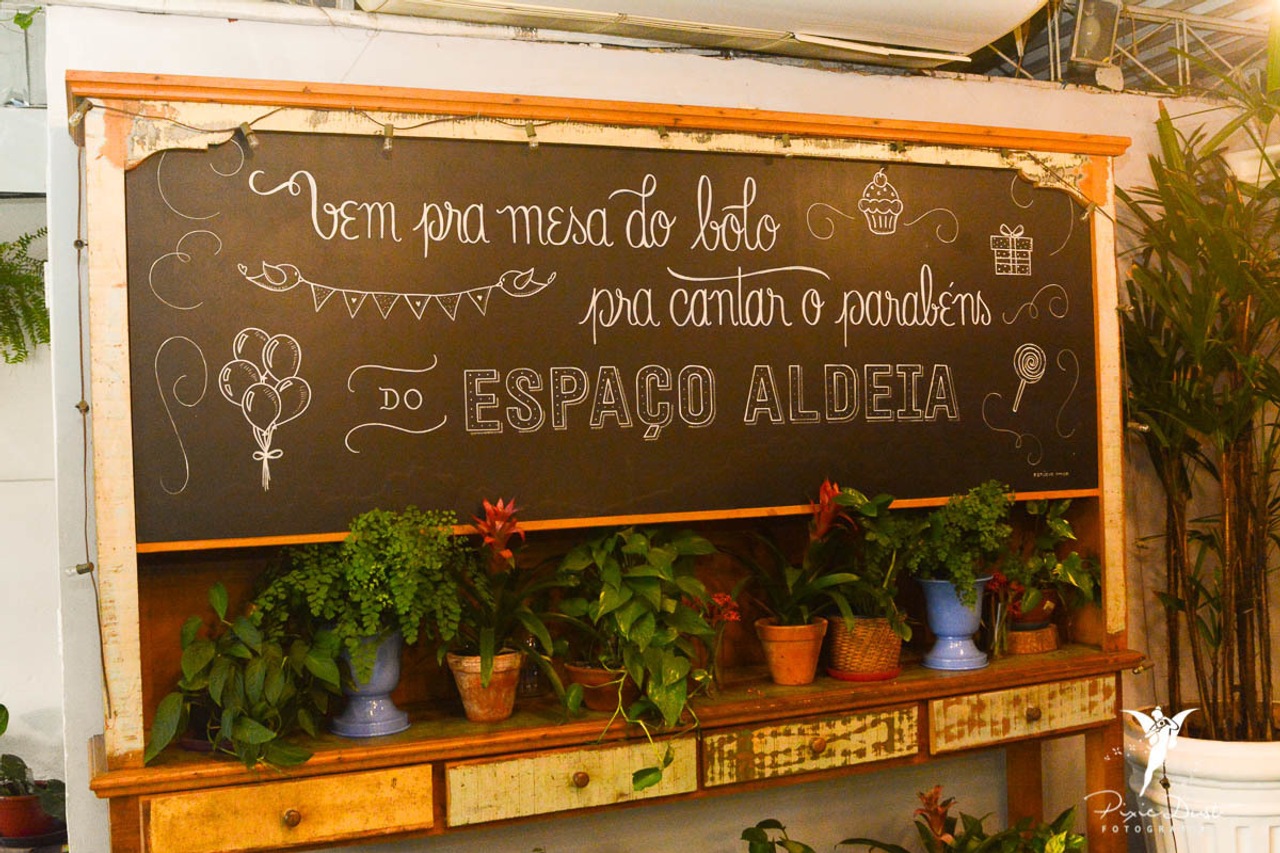 vem pra mesa do bolo
pra cantar o parabéns
DO ESPAÇO ALDEIA
Pixie Dust
FOTOGRAFIA